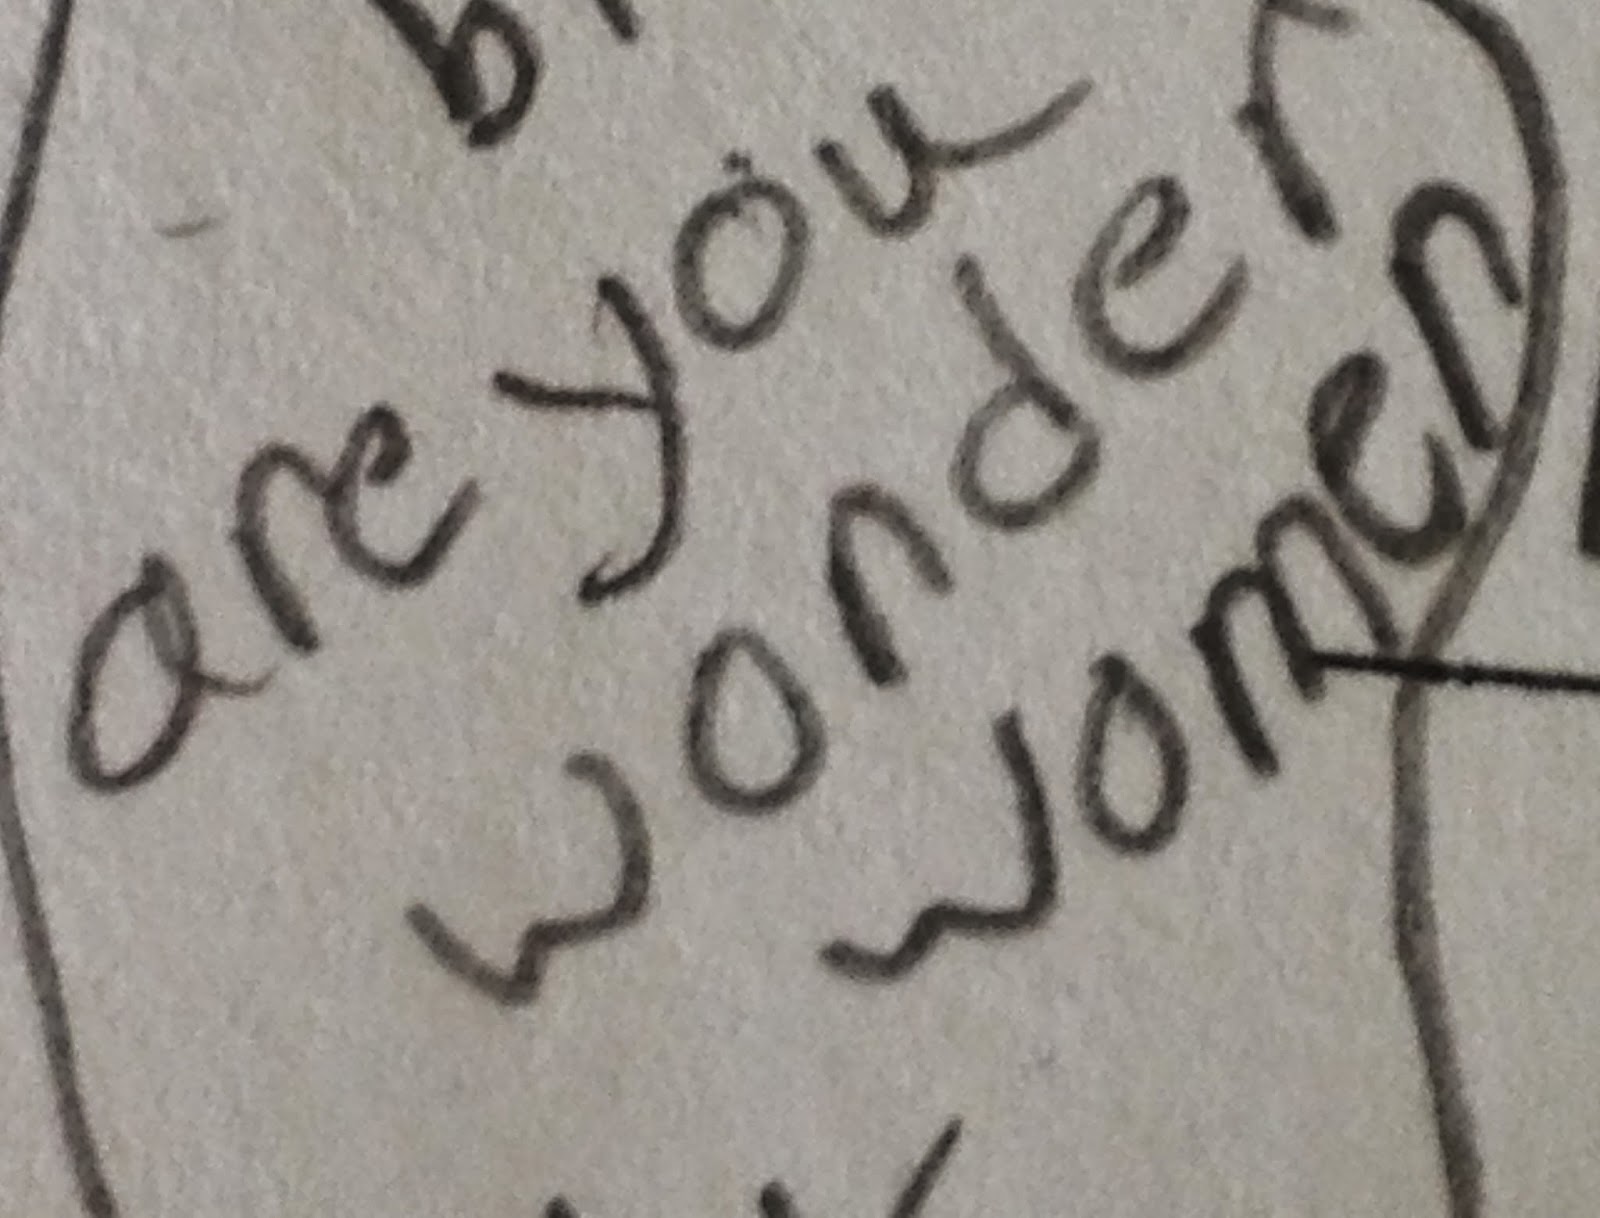 are you
wonder
women